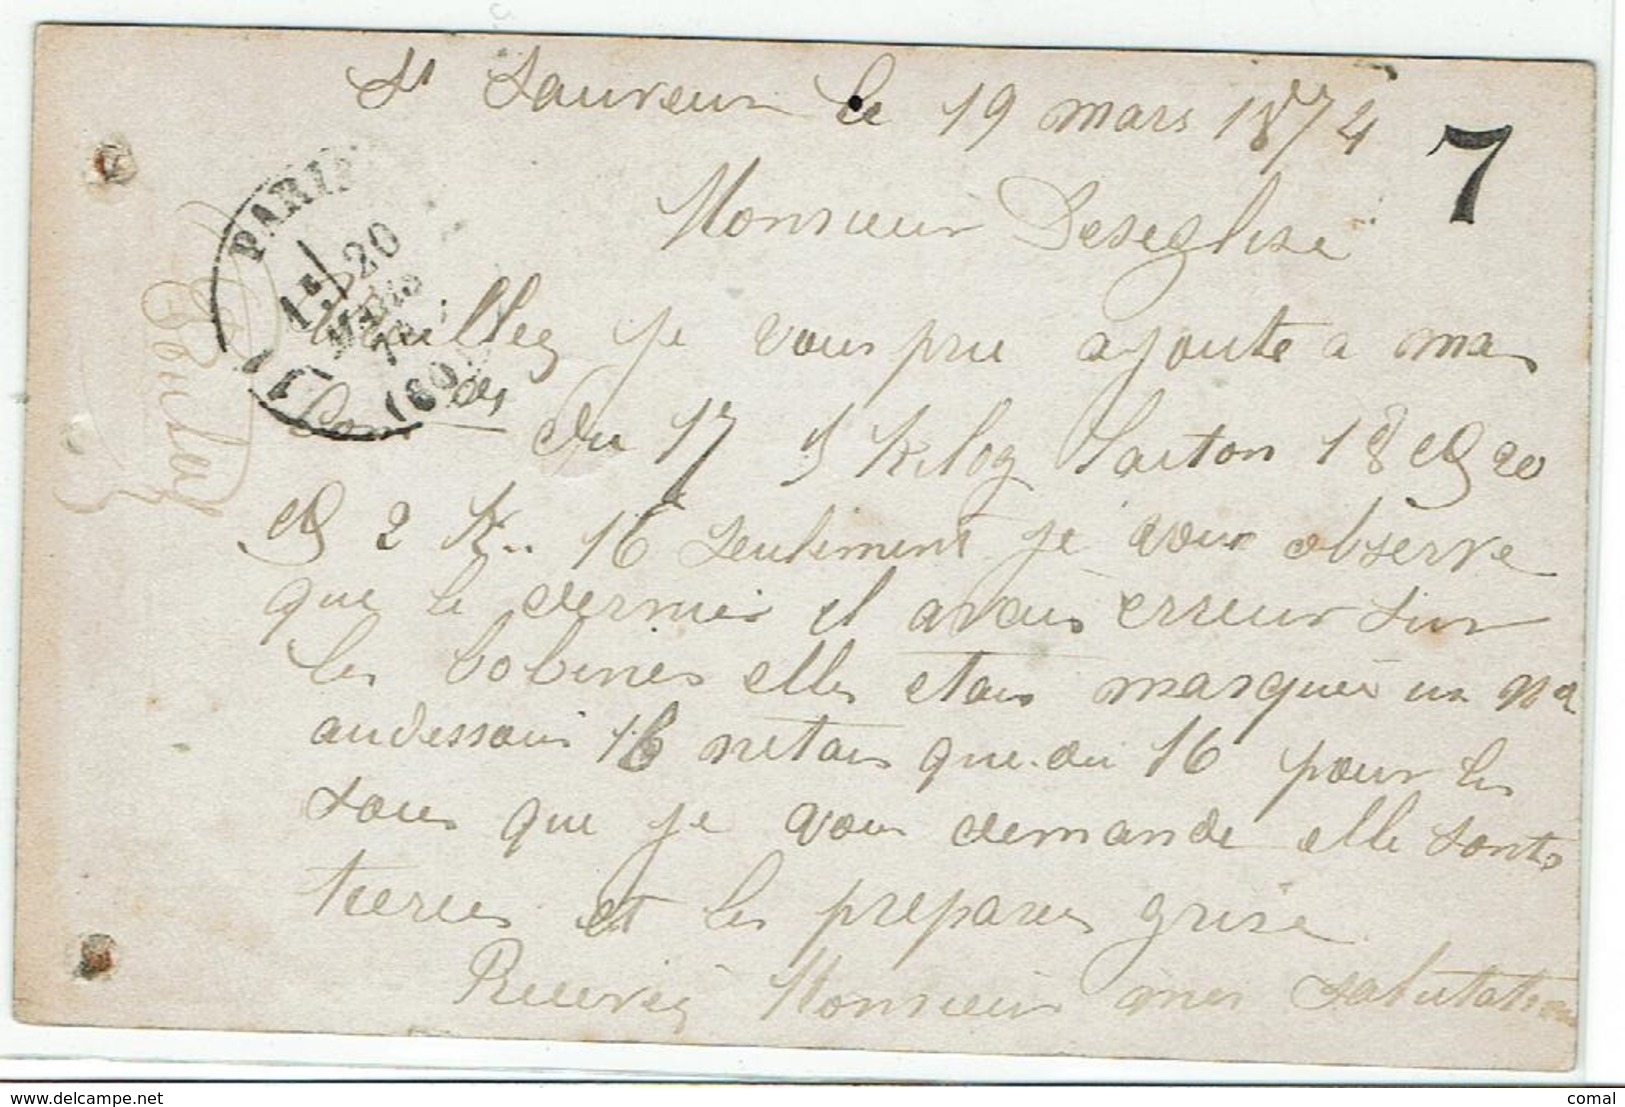 St Sauveur le 19 mars 1874
7
Monsieur Deseglise
PARIS
1E/ 20
MARS
74
(60)
Veuillez je vous prie ajoute a ma
du 17 5 Kilog Laiton 18 et 20
et 2 K.. 16 seuliment je vous observe
que le dernier il avais erreur sur
les bobines elles etais marquée un No
audessous 16 netais que du 16 pour les
sous que je vous demande elle sonts
tierces et les prepares grise
Recevez Monsieur mes salutations
delcampe.net
comal